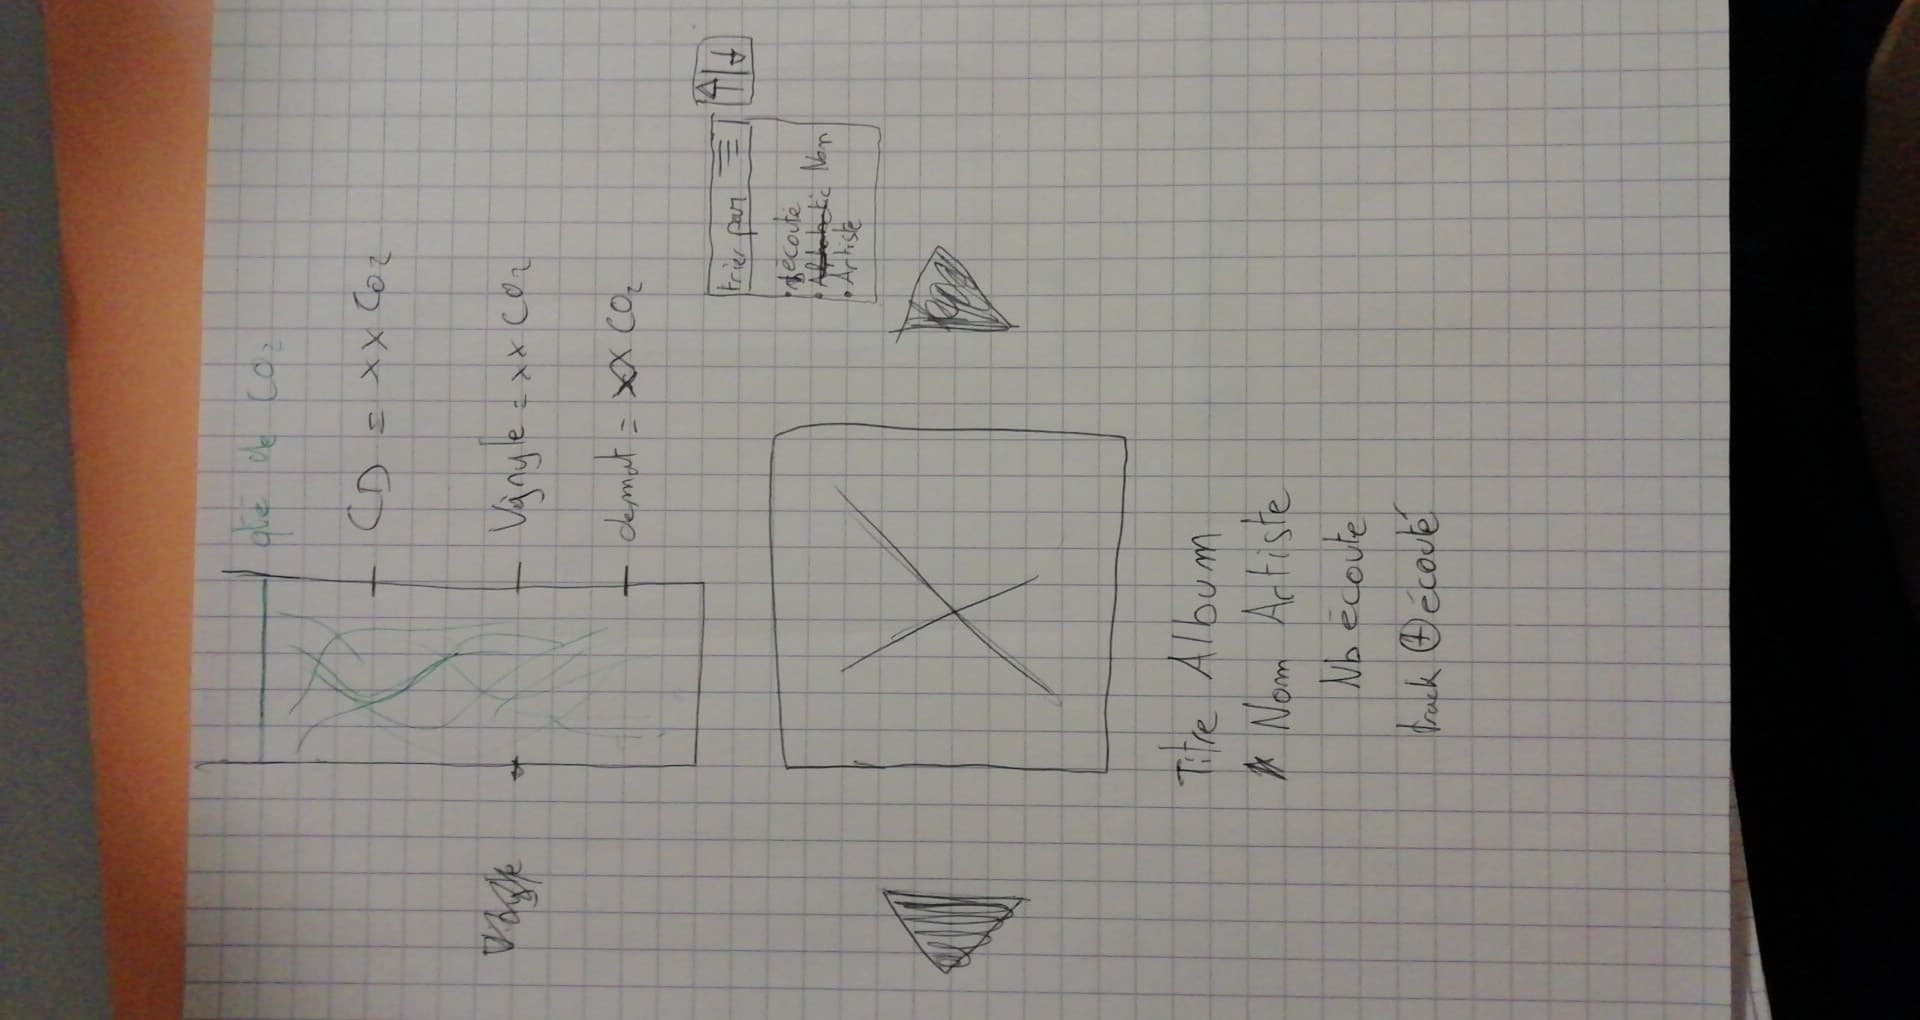 qté de CO2
CD = xx CO2
Vignyle = xx CO2
demat = xx CO2
trier par
écouté
Nom
Artiste
Titre Album
Nom Artiste
Nb écoute
track + écouté